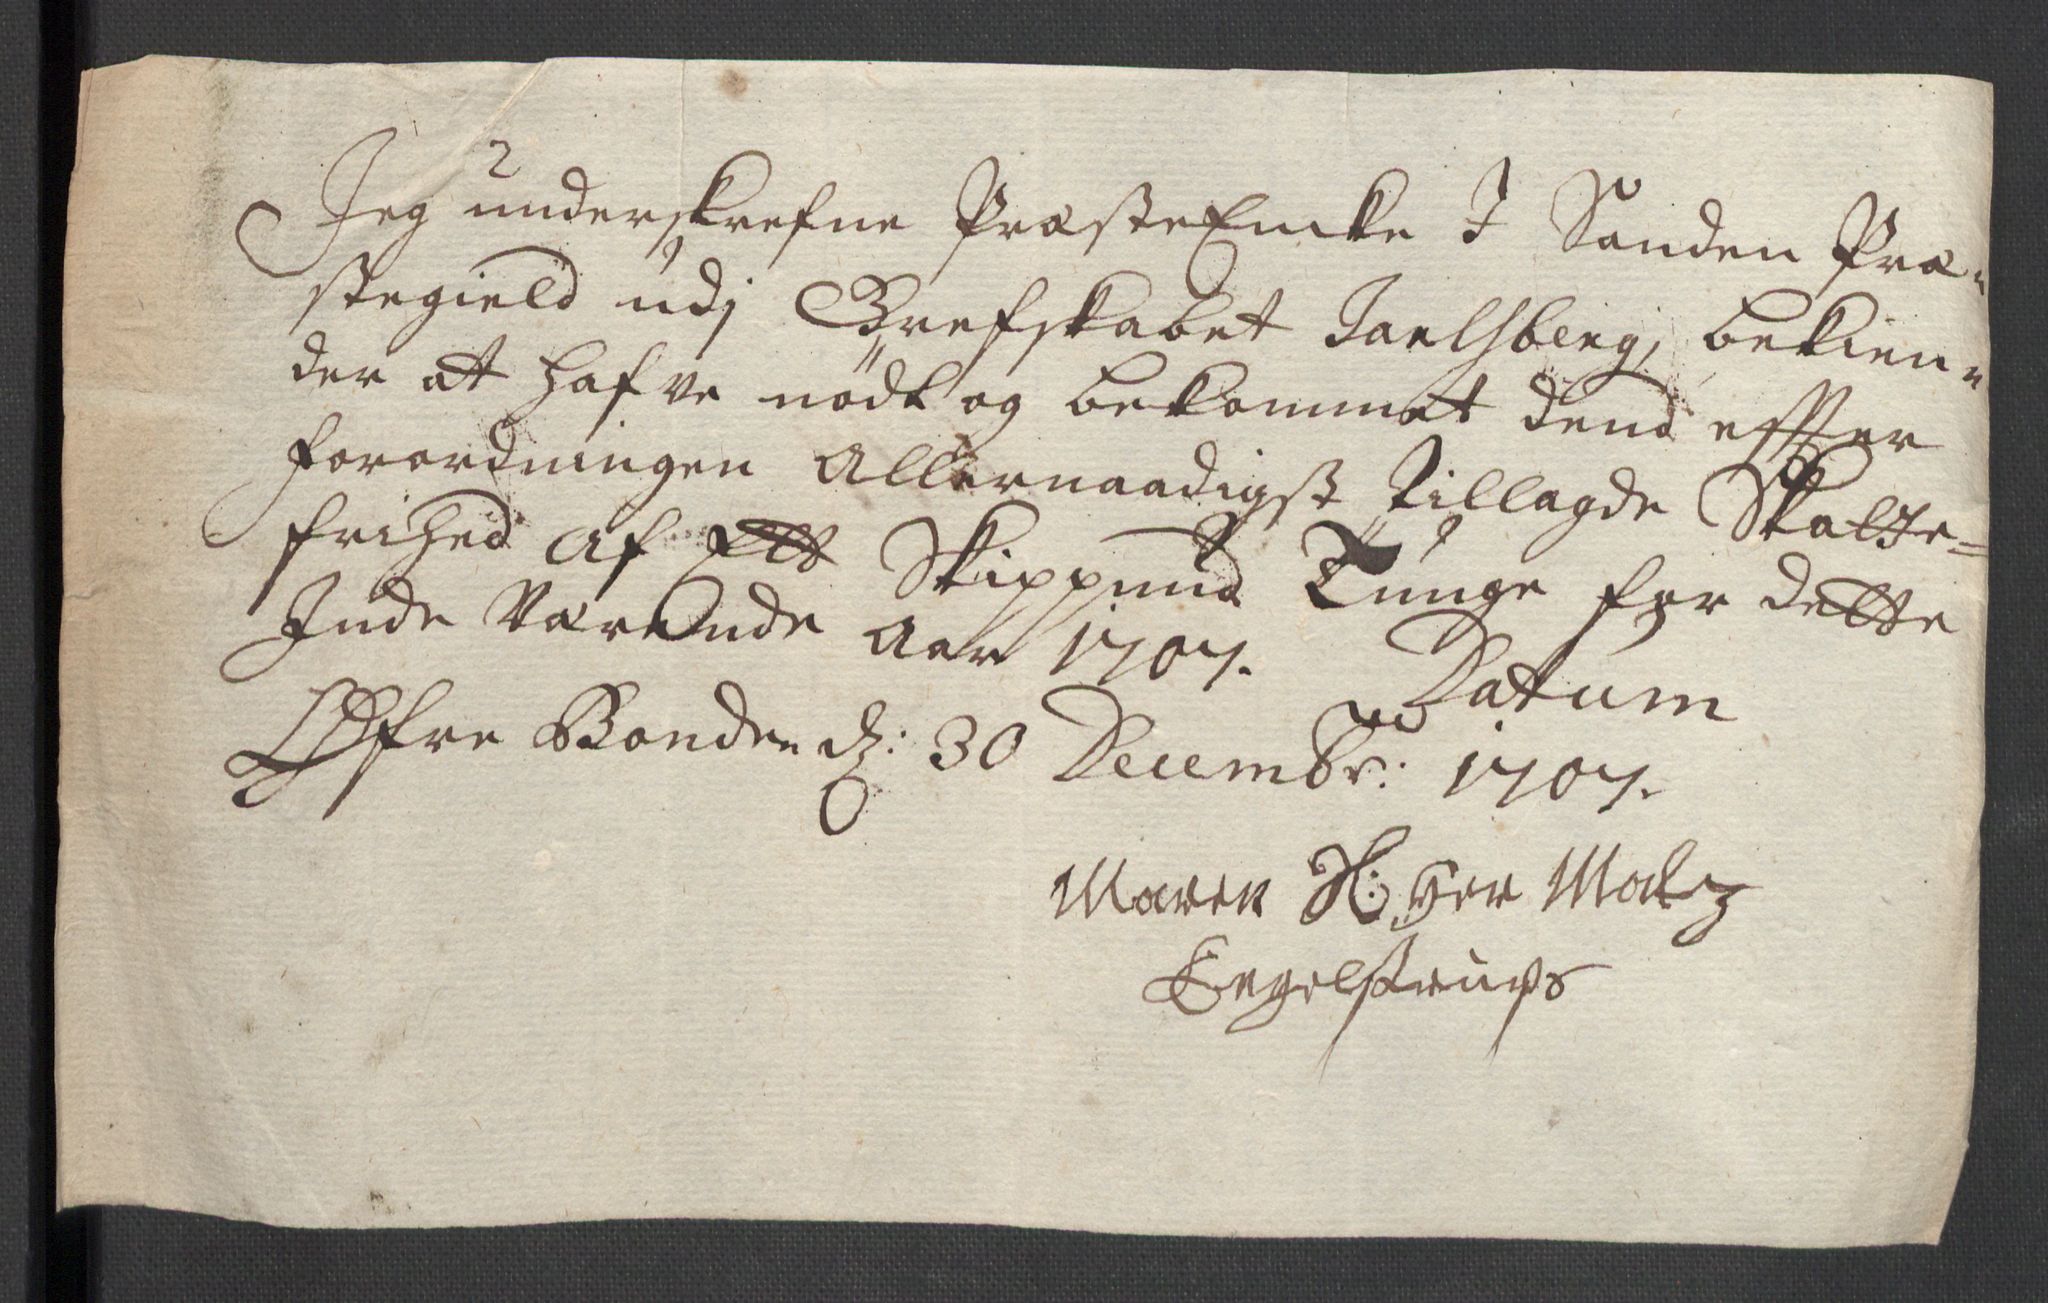 Jeg underskrefne PræsteEncke I Sanden Præ-
stegield udj Grefskabet Jarlsberg, bekien-
der at hafve nødt og bekommet dend effter
forordningen allernaadigst tillagde Skatte-
frihed af Ett Skippund Tunge for dette
Inde Værende Aar 1707. Datum
Øfre Bonden d: 30 Decembr: 1707.
Maren H: Her Malz
Engelstrups